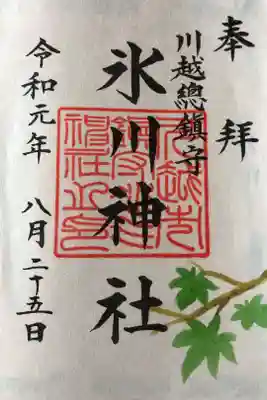 奉拝
川越總鎮守
氷川神社
令和元年 八月二十五日